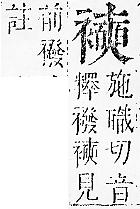 襫
施職切音
釋襏襫見
前襏
註